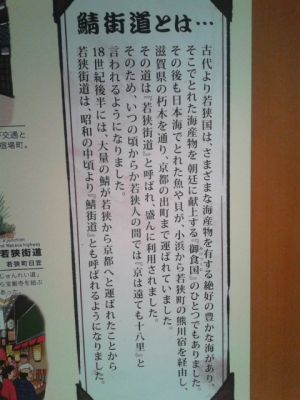 鯖街道とは…
古代より若狭国は、さまざまな海産物を有する絶好の豊かな海があり、
そこでとれた海産物を朝廷に献上する『御食国』のひとつでもありました。
その後も日本海でとれた魚や貝が、小浜から若狭町の熊川宿を経由し、
滋賀県の朽木を通り、京都の出町まで運ばれていました。
その道は『若狭街道』と呼ばれ、盛んに利用されました。
そのため、いつの頃からか若狭人の間では『京は遠ても十八里』と
言われるようになりました。
18世紀後半には、大量の鯖が若狭から京都へと運ばれたことから
若狭街道は、昭和の中頃より『鯖街道』とも呼ばれるようになりました。
下交通と
宿場町。
若狭街道
若狭町日笠